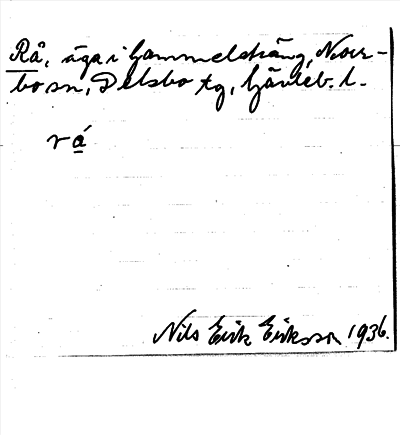 Rå, äga i Gammelsträng, Norr-
bo sn, Delsbo tg, Gävleb. l.
rá
Nils Erik Eriksson 1936.